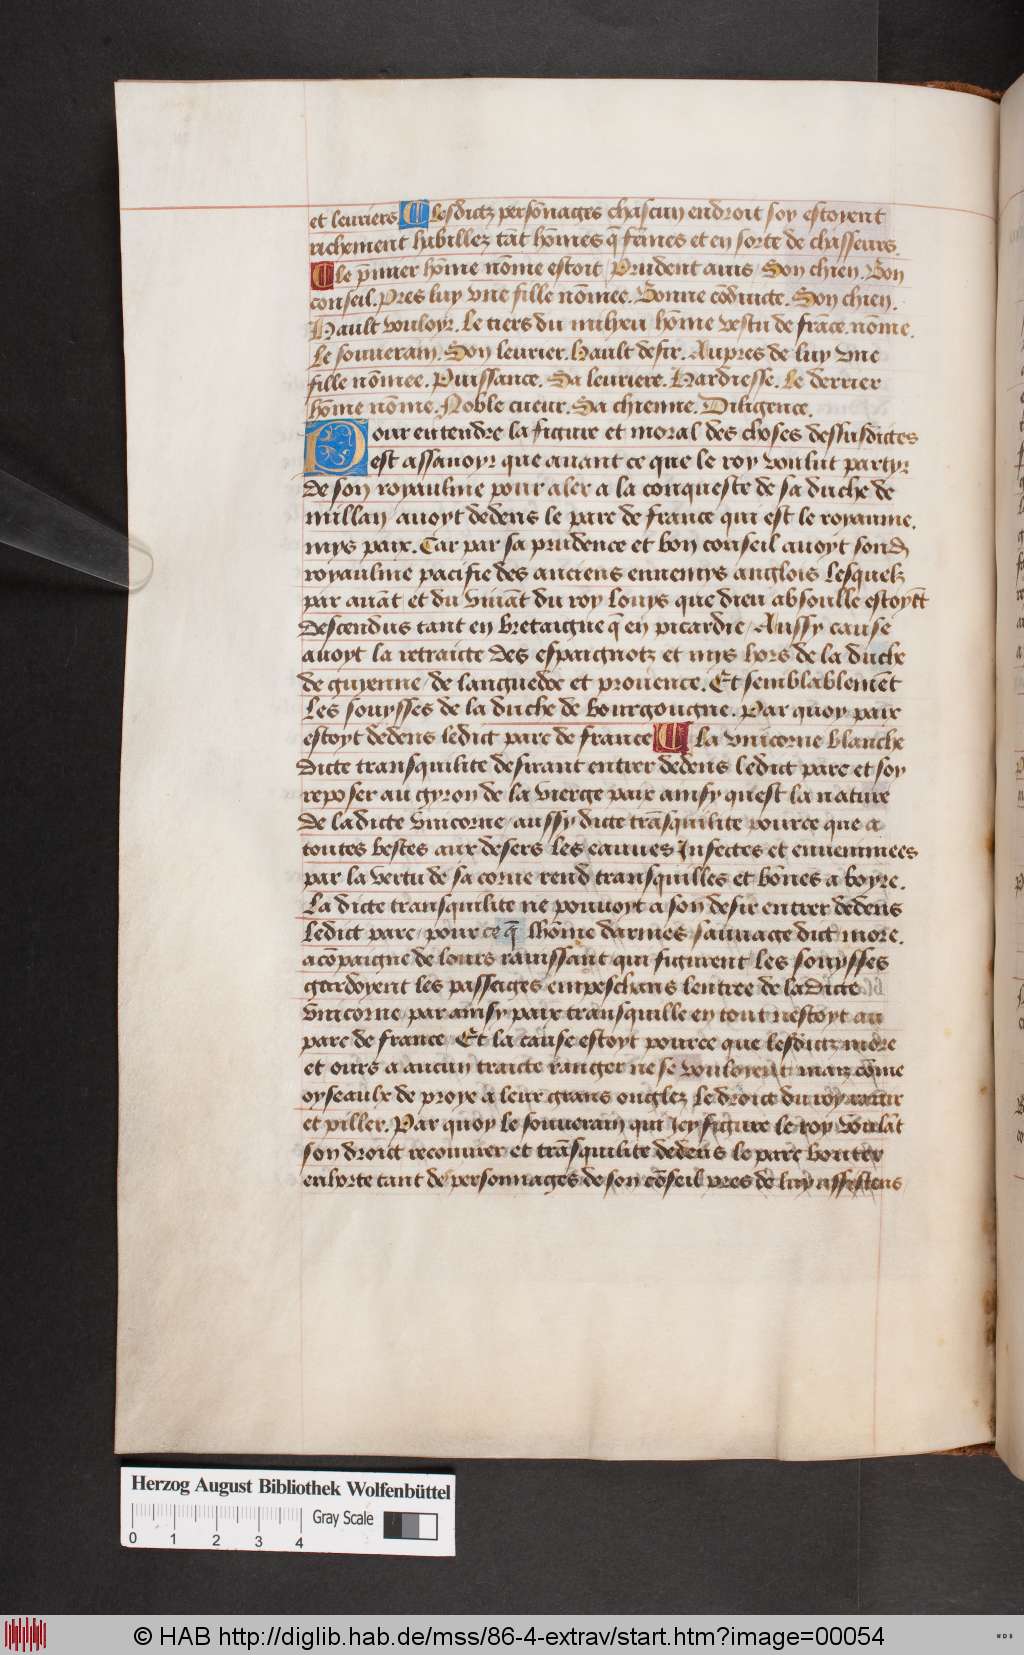 et leuriers ¶ lesdictz persōnages chascun endroit soy estoyent
richement habillez tāt hōmes q̄ fēmes et en sorte de chasseurs.
¶ le p̄mier hōme nōme estoit Prudent auis / Son chien. Bon
conseil. Pres luy vne fille nōmee. Bonne cōduicte. Son chien.
Hault vouloyr. Le tiers du milieu hōme vestu de frāce. nōme.
Le souuerain. Son leurier. Hault desir. Aupres de luy vne
fille nōmee. Puissance. Sa leuriere. Hardiesse. Le derrier
hōme nōme. Noble cueur. Sa chienne. Diligence.
Pour entendre la figure et moral des choses dessusdictes
est assauoyr que auant ce que le roy voulut partyr
de son royaulme pour aler a la conqueste de sa duche de
millan auoyt dedens le parc de france qui est le royaume.
mys paix. Car par sa prudence et bon conseil auoyt sond
royaulme pacifie des anciens ennemys anglois lesquelz
par auāt et du viuāt du roy louys que dieu absoulle estoyēt
descendus tant en bretaigne q̄ en picardie / Aussy cause
auoyt la retraicte des espaignotz et mys hors de la duche
de guyenne / de languedoc et prouence. Et semblablemēt
Les souysses de la duche de bourgougne. Par quoy paix
estoyt dedens ledict parc de france ¶ la vnicorne blanche
dicte transquilite desirant entrer dedens ledict parc et soy
reposer au gyron de la vierge paix ainsy quest la nature
de ladicte vnicorne / aussy dicte trāsquilite pource que a
toutes bestes aux desers les eauues Insectes et enuenimees
par la vertu de sa corne rend transquilles et bōnes a boyre.
La dicte transquilite ne pouuoyt a son desir entrer dedens
ledict parc / pour ce q̄ lhōme darmes sauuage dict more.
acōpaigne de lours rauissant qui figurent les souysses
gardoyent les passaiges empeschans lentree de ladicte
vnicorne par ainsy paix transquille en tout nestoyt au
parc de france / Et la cause estoyt pource que lesdictz more
et ours a aucun traicte ranger ne se vouloyent maiz cōme
oyseaulx de proye a leur grans onglez le droict du roy rauir
et piller. Par quoy le souuerain qui Jcy figure le roy voulāt
son droict recouurer et trāsquilite dedens le parc bouter
enhorte tant de personnages de son cōseil pres de luy assistens
Herzog August Bibliothek Wolfenbüttel
0 1 2 3 4 Gray Scale
© HAB http://diglib.hab.de/mss/86-4-extrav/start.htm?image=00054